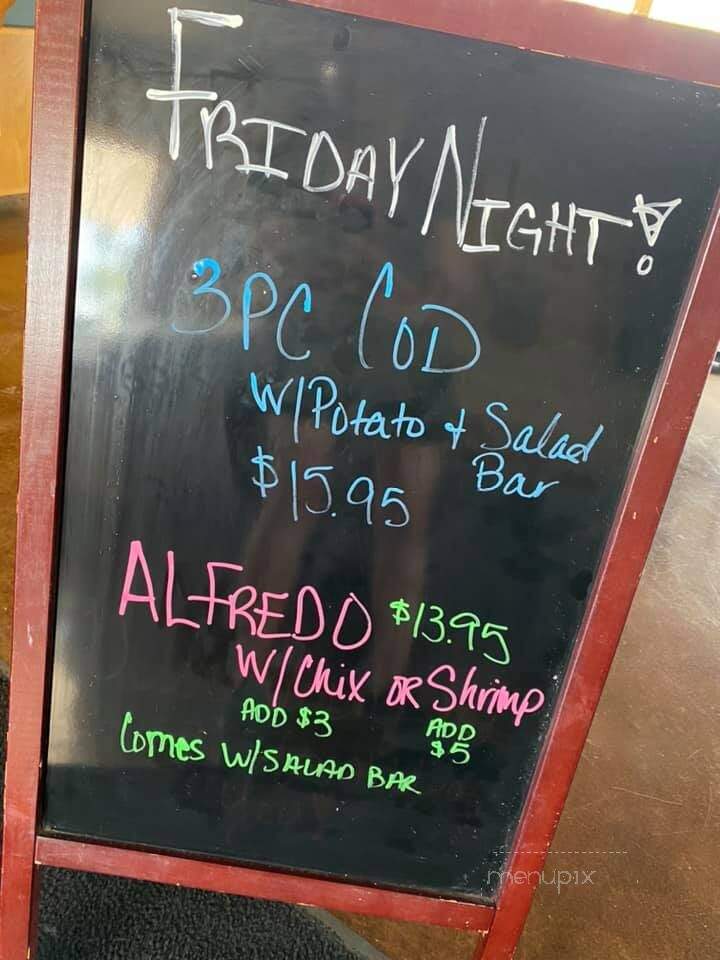 FRIDAY NIGHT!
3PC COD
W/Potato + Salad
Bar
$15.95
ALFREDO $13.95
W/Chix OR Shrimp
ADD $3 ADD
$5
Comes W/SALAD BAR
menupix